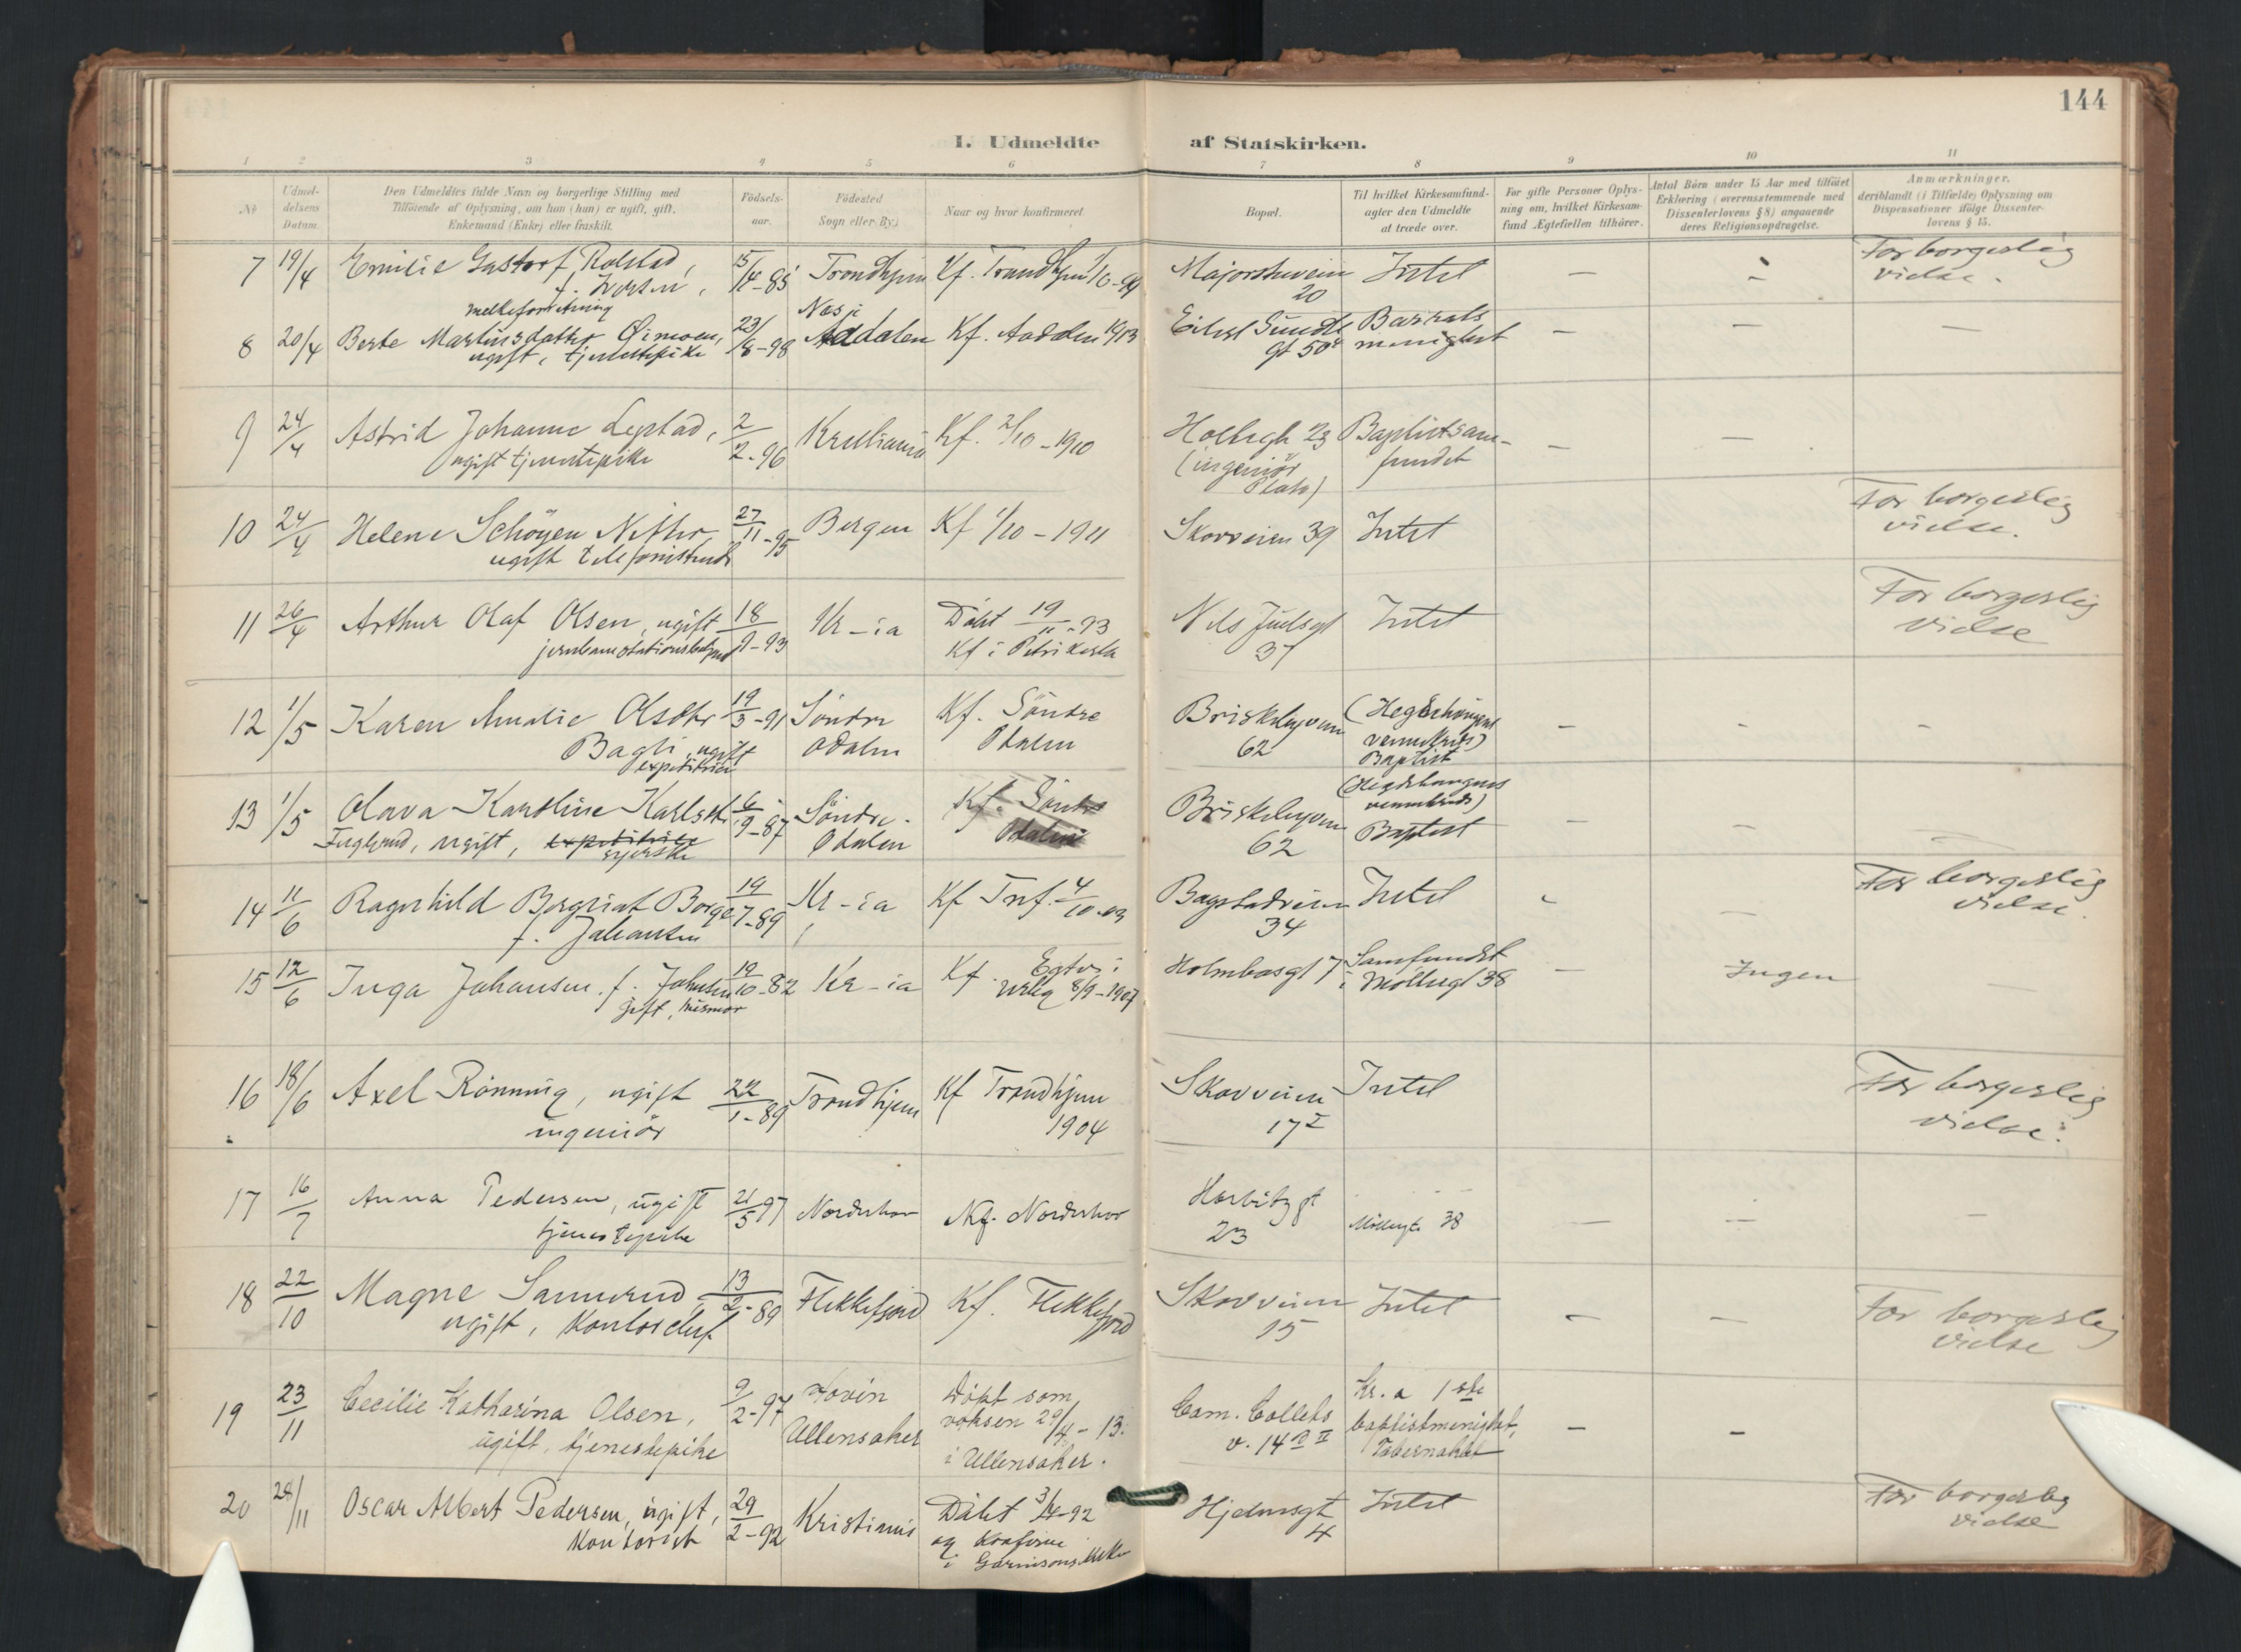 144
I. Udmeldte af Statskirken.
1 2 3 4 5 6 7 8 9 10 11
No
Udmeldelsens Datum.
Den Udmeldtes fulde Navn og borgerlige Stilling med
Tilføiende af Oplysning, om han (hun) er ugift, gift,
Enkemand (Enke) eller fraskilt.
Fødselsaar.
Fødested
Sogn eller By.)
Naar og hvor konfirmeret.
Bopæl.
Til hvilket Kirkesamfund
agter den Udmeldte
at træde over.
For gifte Personer Oplysning
om, hvilket Kirkesamfund
Ægtefællen tilhører.
Antal Børn under 15 Aar med tilføiet
Erklæring (overensstemmende med
Dissenterlovens § 8) angaaende
deres Religionsopdragelse.
Anmærkninger,
deriblandt (i Tilfælde) Oplysning om
Dispensationer ifølge Dissenterlovens § 15.
7 19/4 Emilie Rolstad, 15/4-85 Trondhjem Kf. Trondhjem Majorstuveien Intet — - For borgerlig
f. Iversen, 20 vielse.
melkeforretning
8 20/4 Berte Martinsdatter 23/8-98 Næs i Kf. Aadalen 1913 Eilert Sundts — — —
ugift, tjenestepike Aadalen gt 50 menighet
9 24/4 Astrid Johanne 2/2-96 Kristiania Kf. 2/10-1910 23 Baptistsam- — —
ugift tjenestepike (ingeniør fundet
10 24/4 Helene Schöyen 27/11-95 Bergen Kf 1/10-1911 Skovveien 39 Intet For borgerlig
ugift telefonistinde vielse.
11 26/4 Arthur Olaf Olsen, ugift 18/9-93 Kr-ia Döbt 19/11-93 Nils Juelsgt Intet For borgerlig
Kf i Petri kirke 37 vielse
12 1/5 Karen Amalie Olsdtr 19/3-91 Söndre Kf. Söndre Briskebyveien - - -
Bagli, ugift Odalen Odalen 62 Baptist
expeditrice
13 1/5 Olava Karoline Karlsdtr 6/9-87 Söndre Kf. Söndre Briskebyveien - - -
ugift, expeditrice Odalen Odalen 62 Baptist
syerske
14 11/6 Ragnhild Borge 19/7-89 Kr-ia Kf Tref. 4/10-03 Bogstadveien Intet - — For borgerlig
f. Johansen 34 vielse.
15 12/6 Inga Johansen f. Johnsen 19/10-82 Kr-ia Kf. 8/9-1907 Holmboesgt 7 Samfundet — Ingen —
gift, husmor i Möllergt 38
16 18/6 Axel Rönning, ugift 22/1-89 Trondhjem Kf Trondhjem Skovveien Intet For borgerlig
ingeniör 1904 17 I vielse.
17 16/7 Anna Pedersen, ugift 21/5 97 Norderhov Kf. Norderhov Harbitzgt Möllergt 38 — — —
tjenestepike 23
18 22/10 Magne 13/2-89 Flekkefjord Kf. Flekkefjord Skovveien Intet - — For borgerlig
ugift, Kontorchef 15 vielse
19 23/11 Cecilie Katharina Olsen, 9/2-97 Hovin Döbt som Cam. Colletts Kr.a 1ste — -
ugift, tjenestepike Ullensaker voksen 29/4-13. v. 14 II baptistmenighet,
i Ullensaker. Tabernaklet
20 28/11 Oscar Albert Pedersen, ugift, 29/2-92 Kristiania Döbt 3/4-92 Hjelmsgt Intet For borgerlig
Kontorist og konfirm. 4 vielse
i Garnisonskirken